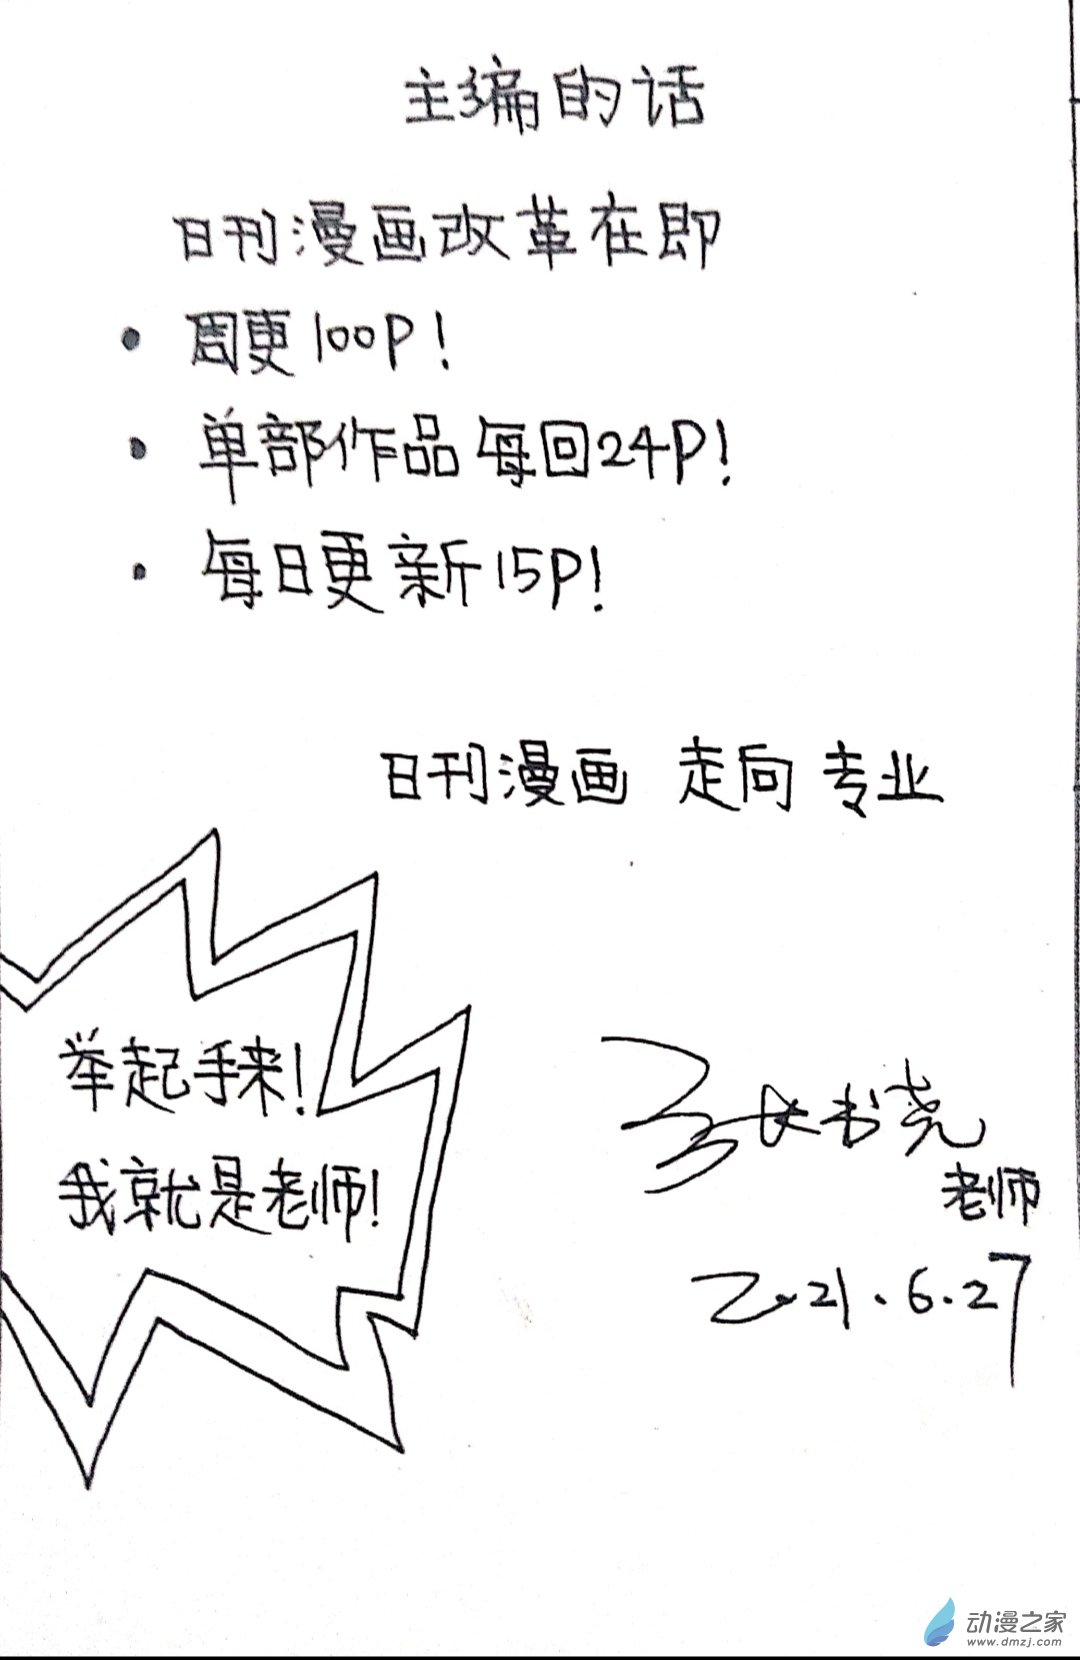 主编的话
日刊漫画改革在即
• 周更100P!
• 单部作品每回24P!
• 每日更新15P!
日刊漫画 走向 专业
举起手来!
我就是老师!
张书尧
老师
2021.6.27
动漫之家
www.dmzj.com